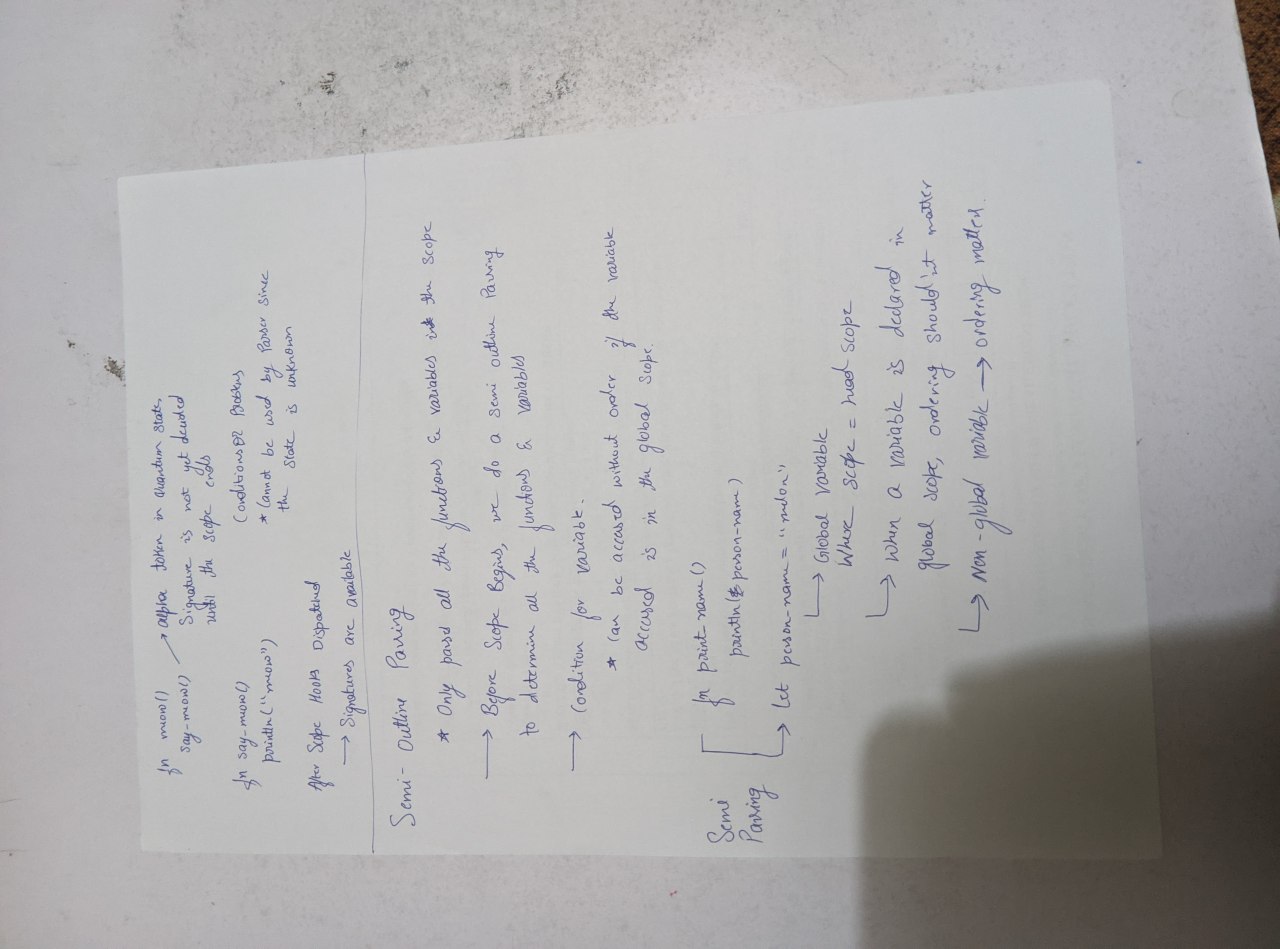 fn meow()
say-meow() → alpha token in quantum state,
Signature is not yet decided
until the scope ends
fn say-meow()
println("meow")
Conditions or Problems
* Cannot be used by Parser since
the state is unknown
After Scope Hooks Dispatched
→ Signatures are available
Semi-Outline Parsing
* Only parse all the functions & variables in the scope
→ Before Scope Begins, we do a semi outline Parsing
to determine all the functions & variables
→ Condition for variable.
* Can be accessed without order if the variable
accessed is in the global scope.
Semi
Parsing
fn print name()
println(person-name)
→ let person-name = "melon"
→ Global variable
Where scope = head scope
→ When a variable is declared in
global scope, ordering should'nt matter
→ Non-global variable → ordering matters.